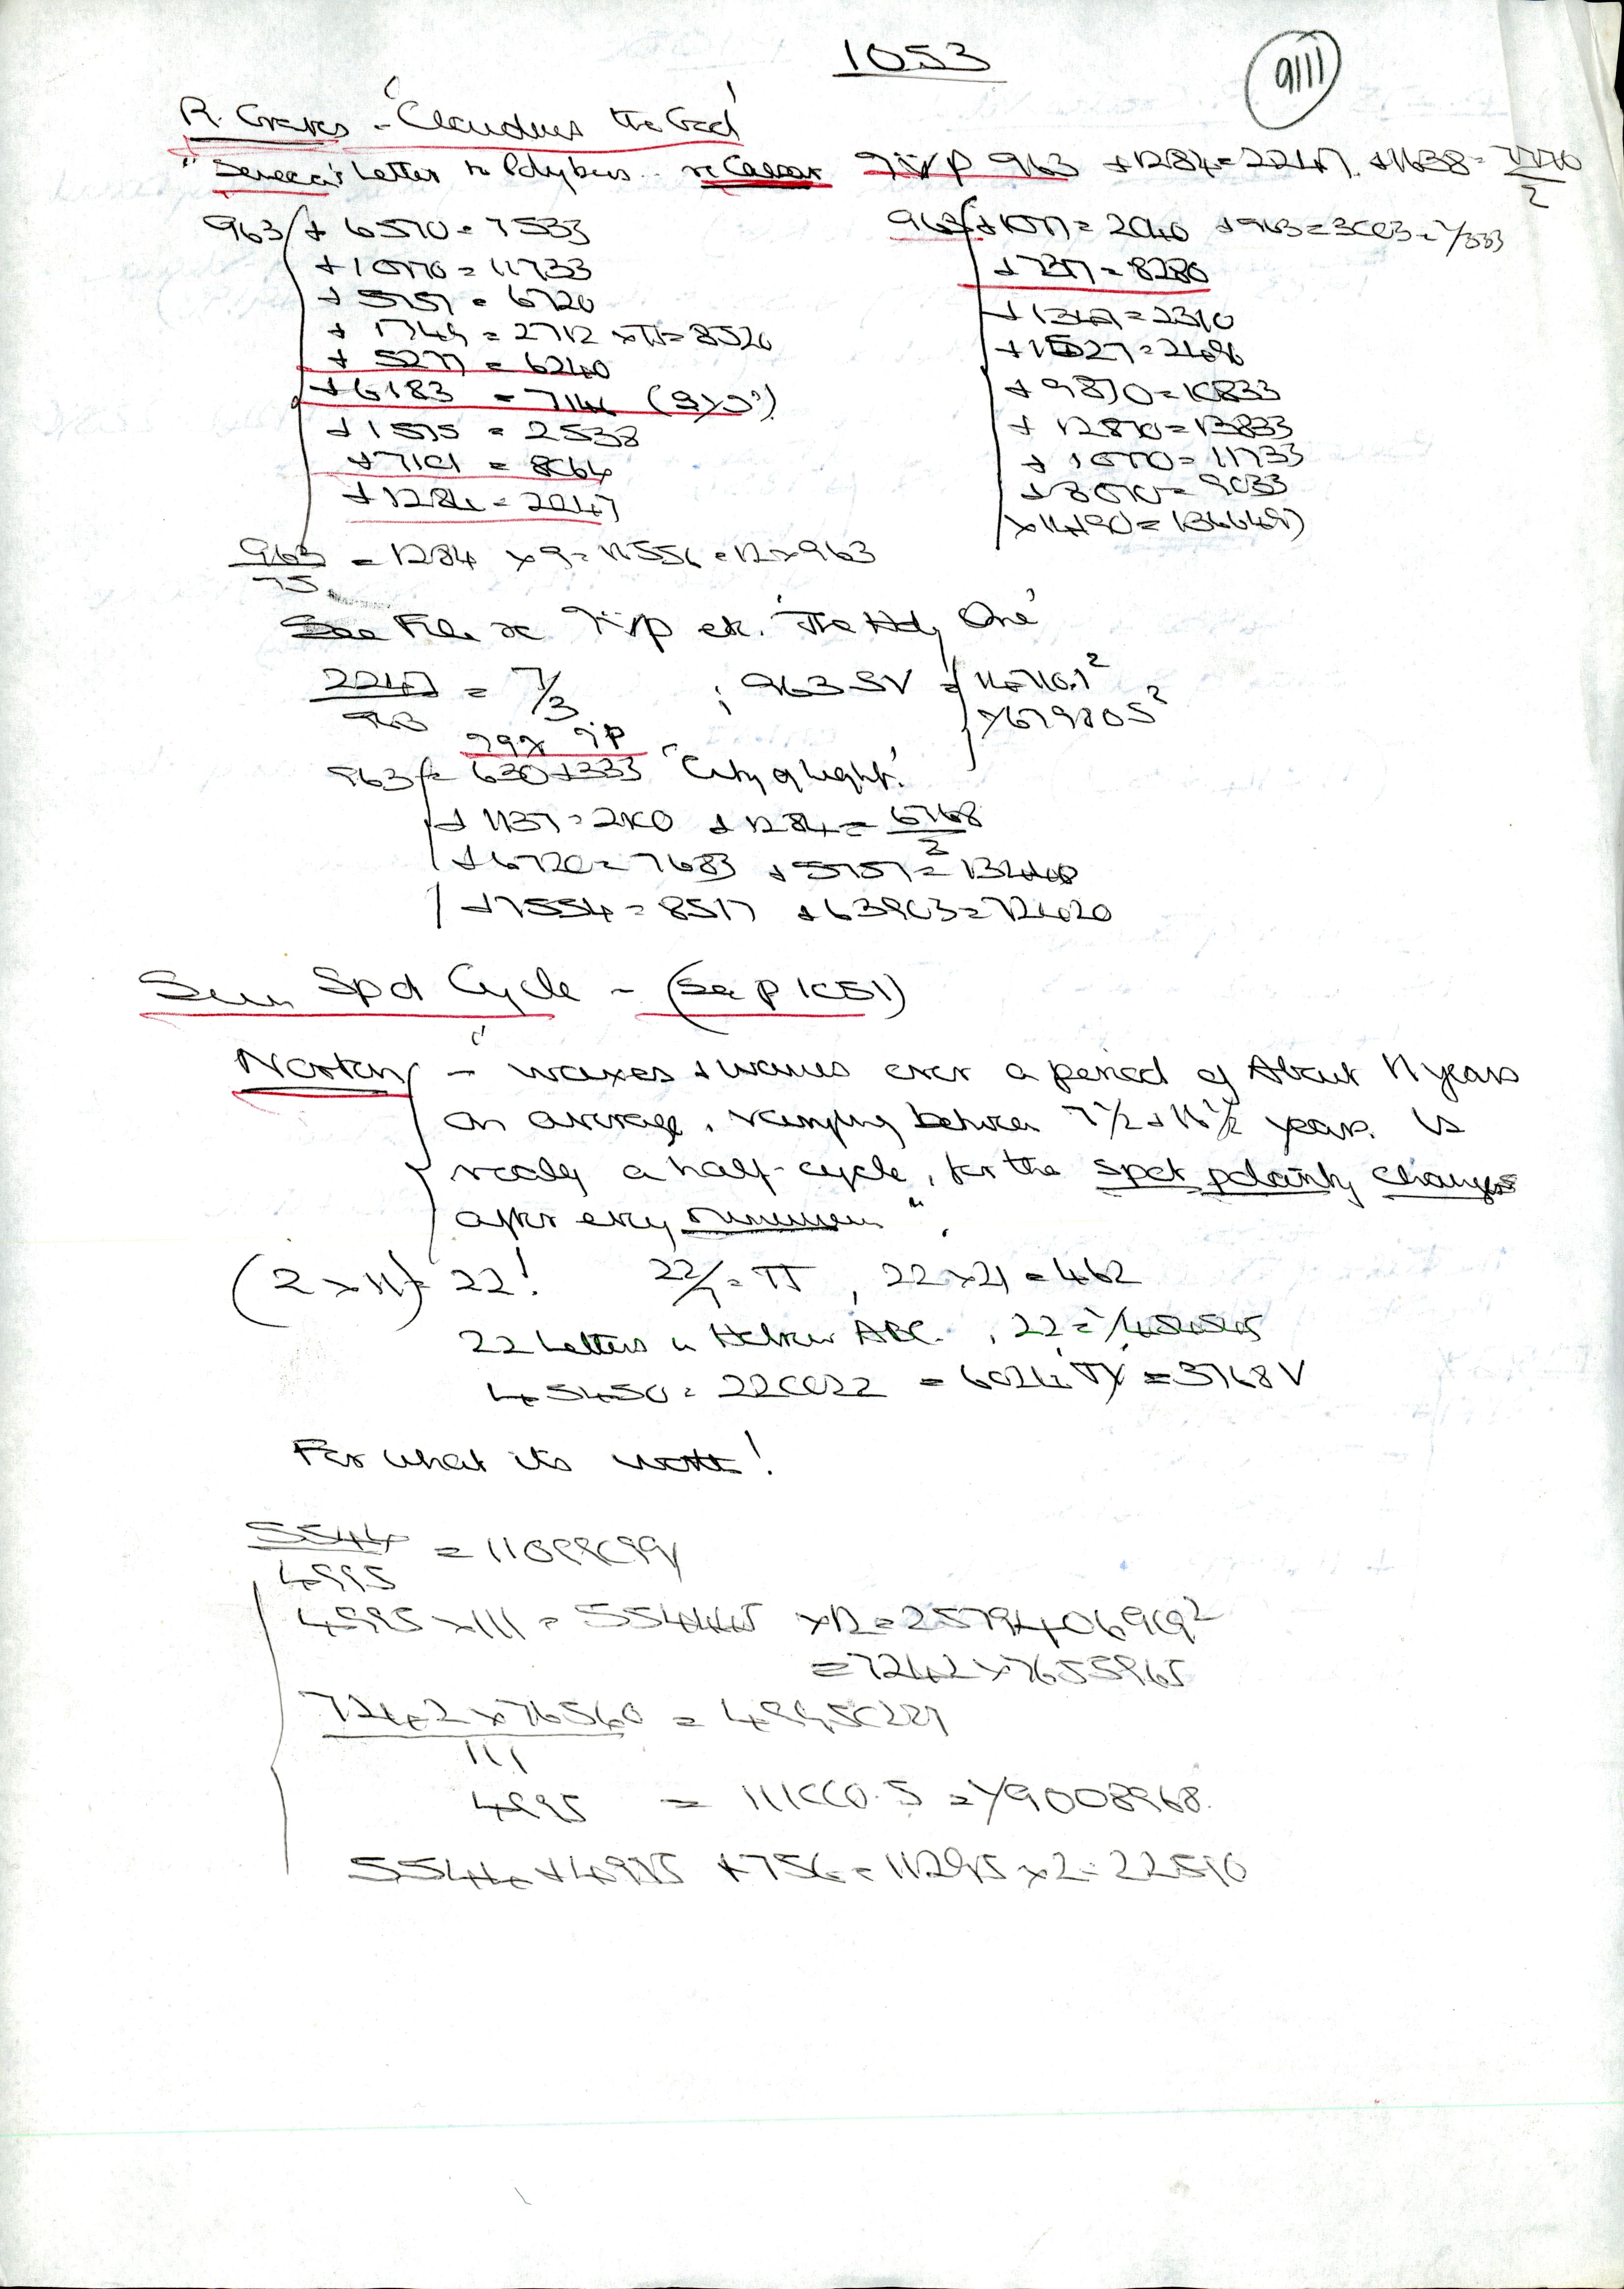 1053
9111
R. Graves - 'Claudius the God'
"Seneca's Letter to Polybius .. re Caesar 963 + 1284 = 2247. + 1638 =
2
963 + 6570 = 7533
+ 10770 = 11733
+ 5757 = 6720
+ 1749 = 2712 x π = 8520
+ 5277 = 6240
+ 6183 = 7146
+ 1575 = 2538
+ 7101 = 8064
+ 1284 = 2247
963 + 1077 = 2040 + 963 = 3003 = 1/333
+ 7317 = 8280
+ 1347 = 2310
+ 1527 = 2490
+ 9870 = 10833
+ 12870 = 13833
+ 10770 = 11733
+ 8070 = 9033
x 14190 = 1366497
963 = 1284 x 9 = 11556 = 12 x 963
75
See File re etc. 'The Holy One'
2247 = 7/3 ; 963 SV =
963
963 = 630 + 333 "City of Light'
+ 1137 = 2100 + 1284 = 6768
2
+ 6720 = 7683 + 5757 = 13440
+ 7554 = 8517 + 63903 = 72420
Sun Spot Cycle - (See p 1051)
Norton - "waxes & wanes over a period of About 11 years
on average, varying between 7 1/2 & 16 1/2 years. Is
really a half-cycle, for the spot polarity changes
after every minimum".
(2 x 11) = 22! 22/7 = π, 22 x 21 = 462
22 Letters in Hebrew ABC. , 22 = 1/454545
45450 = 220022 = = 3768 V
For what its worth!
5544 = 11099099
4995
4995 x 111 = 554445 x 12 = 2579406969²
= 7242 x 7655965
7242 x 76560 = 49950227
111
4995 = 111000.5 = 1/9008968.
5544 + 4995 + 756 = 11295 x 2 = 22590